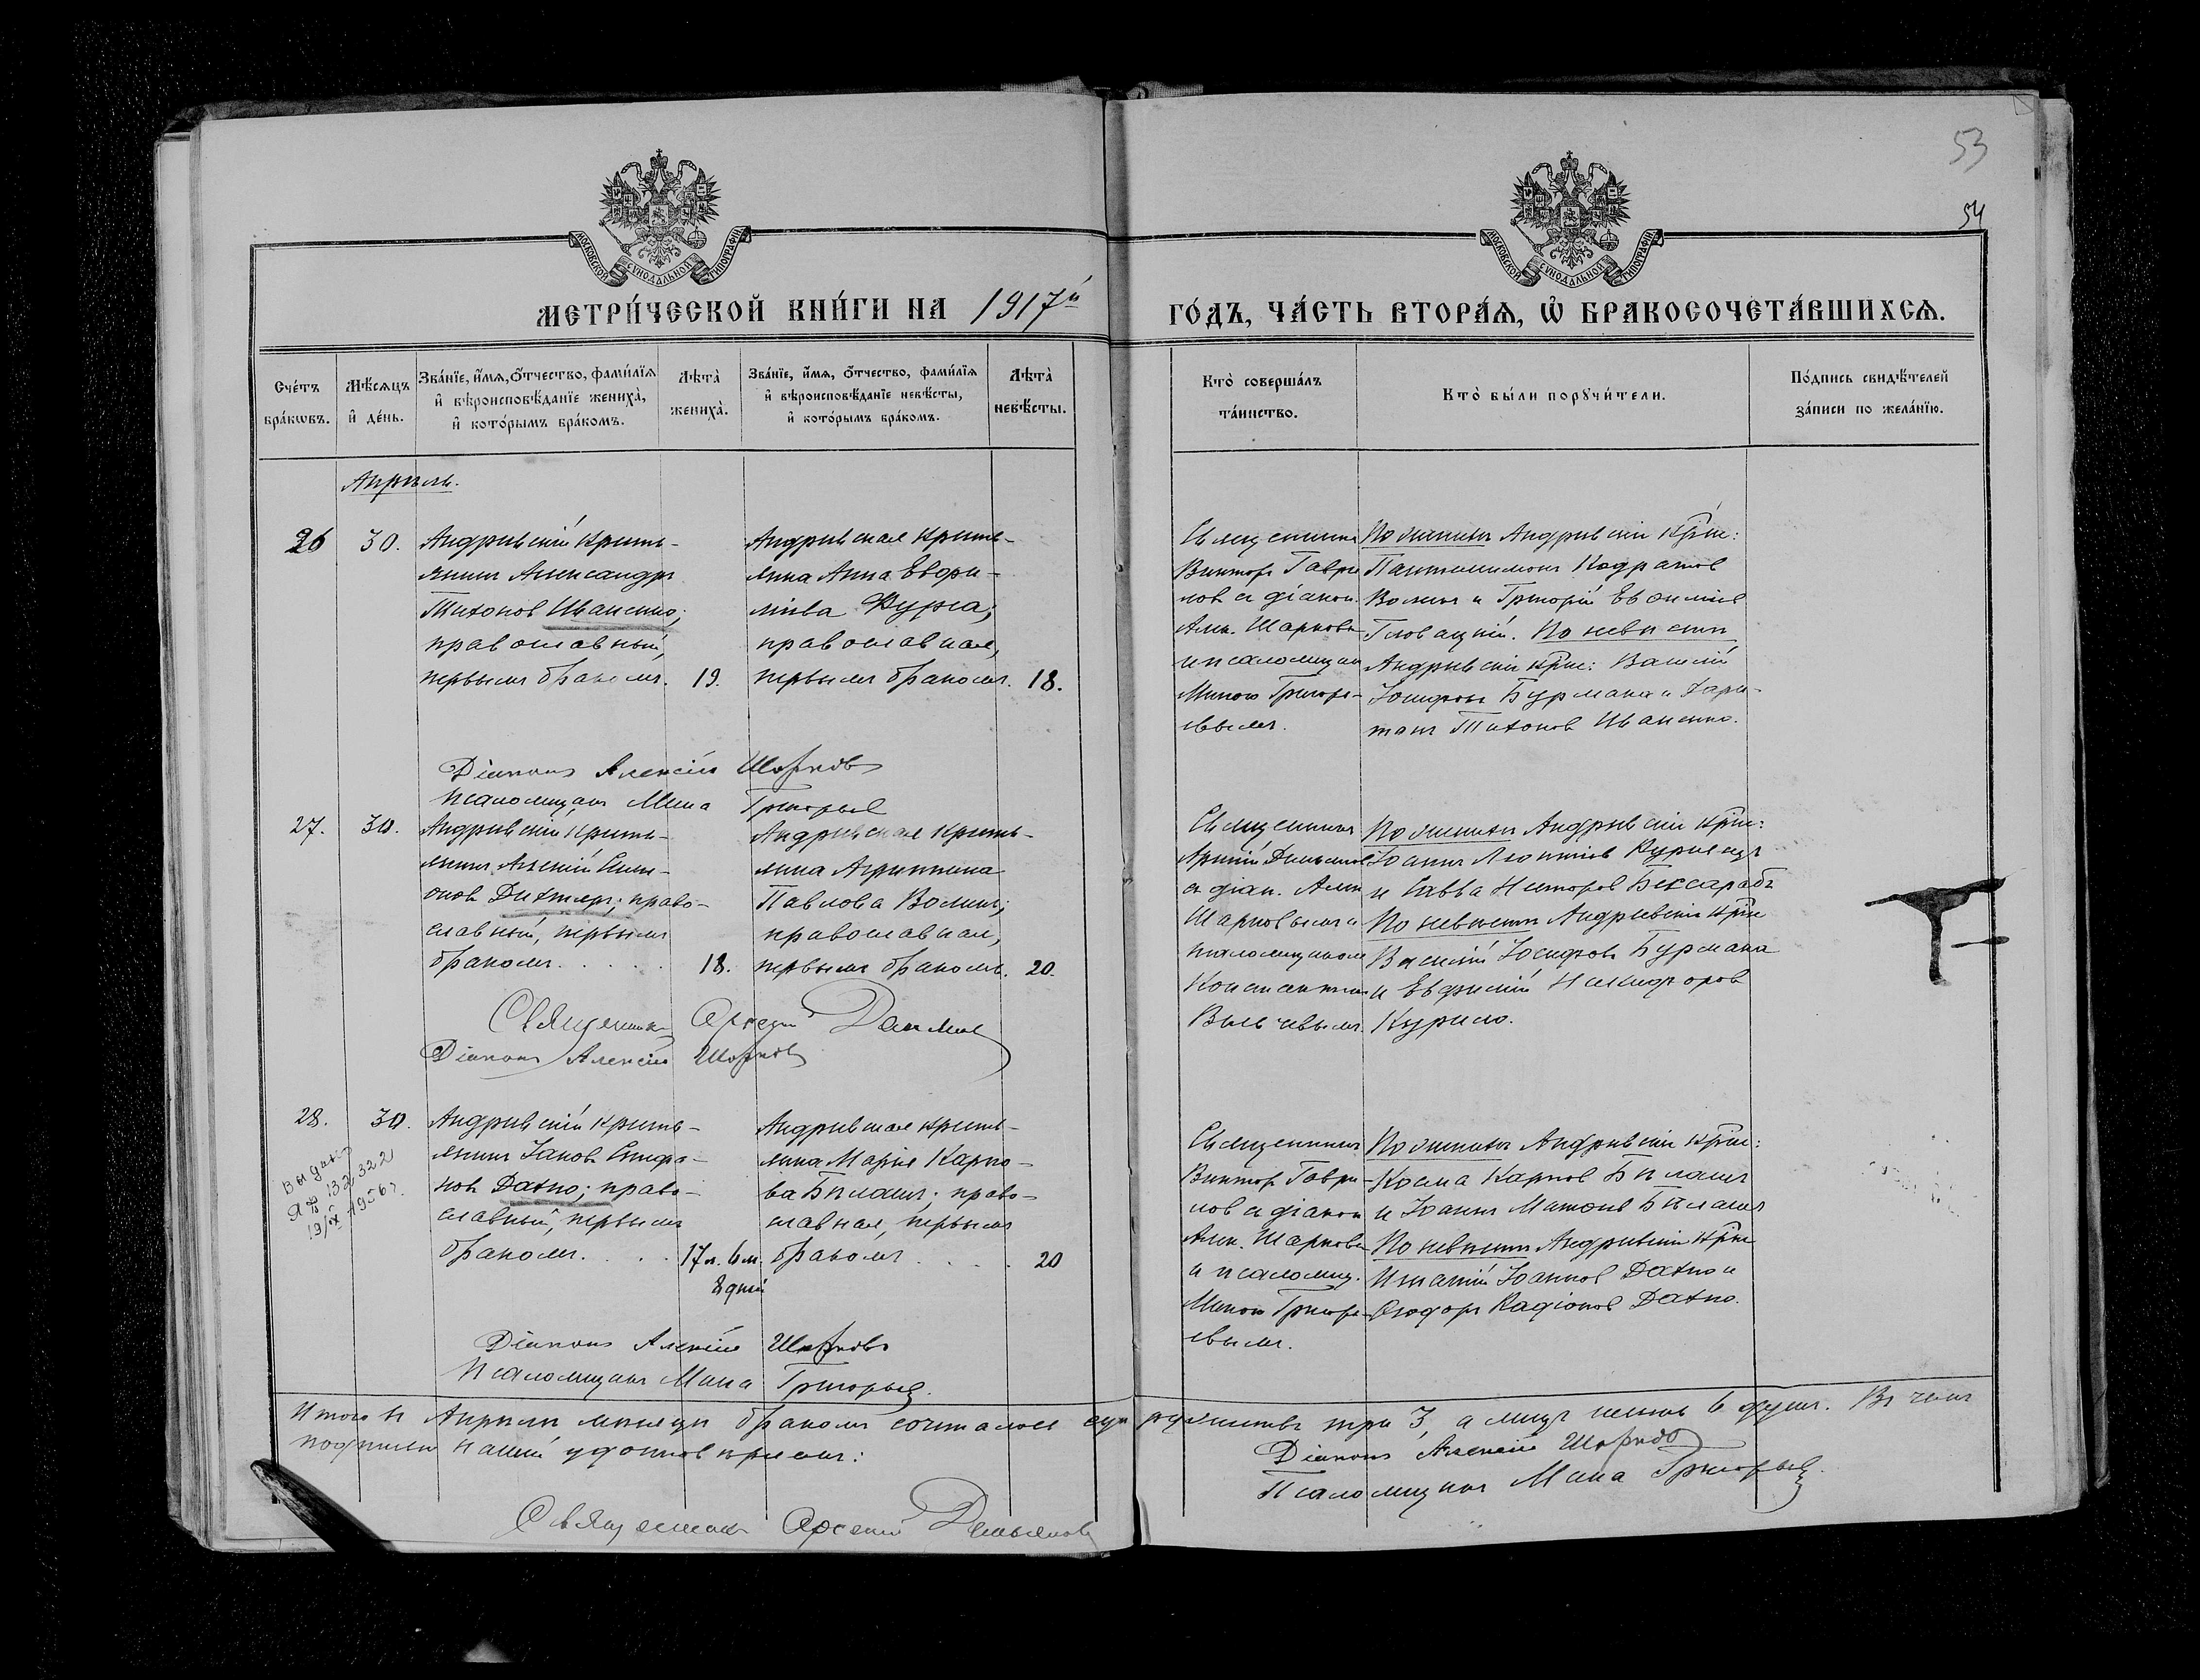 53
54
МОСКОВСКОЙ СѴНОДАЛЬНОЙ ТИПОГРАФІИ
МОСКОВСКОЙ СѴНОДАЛЬНОЙ ТИПОГРАФІИ
МЕТРИ́ЧЕСКОЙ КНИ́ГИ НА 1917й
ГО́ДЪ, ЧА́СТЬ ВТОРА́Ѧ, Ѡ҆ БРАКОСОЧЕТА́ВШИХСѦ.
Сче́тъ бра́кѡвъ.
Мѣ́сѧцъ и҆ де́нь.
Зва́нїе, и҆́мѧ, ѻ҆́тчество, фами́лїѧ
и҆ вѣроисповѣ́данїе жениха̀,
и҆ кото́рымъ бра́комъ.
Лѣта̀ жениха̀.
Зва́нїе, и҆́мѧ, ѻ҆́тчество, фами́лїѧ
и҆ вѣроисповѣ́данїе невѣ́сты,
и҆ кото́рымъ бра́комъ.
Лѣта̀ невѣ́сты.
Кто̀ соверша́лъ та́инство.
Кто̀ бы́ли порꙋчи́тели.
По́дпись свидѣ́телей за́писи по жела́нїю.
Апрѣль.
26
30.
Андріевскій кресть-
янинъ Александръ
Тихоновъ Иваненко;
православный,
первымъ бракомъ.
19.
Андріевская кресть-
янка Анна Евѳи-
міева
православная,
первымъ бракомъ.
18.
Священникъ
Викторъ Гаври
ловъ съ діакон.
Алек. Шарковы
и псаломщик
Миною Григорь-
евымъ.
По женихѣ Андріевскіе крне:
Пантелимонъ Кодратовъ
Волкъ и Григорій Евѳиміев
Гловацкій. По невѣстѣ
Андріевскіе крне: Василій
Іосифовъ Бурлака и Хари-
тонъ Тихоновъ Иваненко.
Діаконъ Алексій Шарковъ
Псаломщикъ Мина Григорьев
27.
30.
Андріевскій кресть-
янинъ Алексій Сим-
оновъ Дихтяръ; право-
славный, первымъ
бракомъ
18.
Андріевская кресть-
янка Агриппина
Павлова Волкъ;
православная,
первымъ бракомъ.
20.
Священникъ
Арсеній Демьянов
съ діак. Алек
Шарковымъ и
псаломщикомъ
Константин
По женихѣ Андріевскіе крне:
Іоаннъ Леонтіевъ
и Савва Несторовъ Бессарабъ
По невѣстѣ Андріевскіе крне
Василій Іосифовъ Бурлака
и Евфимій Никифоров
Курило.
Священникъ Арсеній Демьянов
Діаконъ Алексій Шарковъ
28.
30.
Выдано
ЯФ 132322
19/IX 1956 г.
Андріевскій кресть-
янинъ Іаковъ Стефа-
новъ Дахно; право-
славный, первымъ
бракомъ
17 л. 6 м.
8 дней
Андріевская кресть-
янка Марія Карпо-
ва Бѣлашъ; право-
славная, первымъ
бракомъ
20
Священникъ
Викторъ Гаври-
ловъ съ діакон
Алек. Шарковы
и псаломщ.
Миною Григорь-
евымъ.
По женихѣ Андріевскіе крне:
Косма Карповъ Бѣлашъ
и Іоаннъ Матѳіевъ Бѣлашъ
По невѣстѣ Андріевскіе крне
Игнатій Іоанновъ Дахно и
Ѳеодоръ Радіоновъ Дахно.
Діаконъ Алексій Шарковъ
Псаломщикъ Мина Григорьев.
Итого въ Апрѣлѣ мѣсяцѣ бракомъ сочталось супружествъ три 3, а лицъ шесть 6 душъ. Въ чемъ
подписью нашей удостовѣряемъ:
Діаконъ Алексій Шарковъ
Псаломщикъ Мина Григорьев.
Священникъ Арсеній Демьяновъ